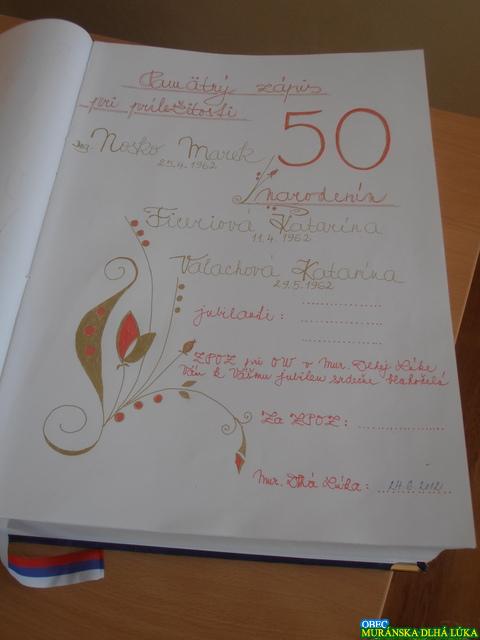 Pamätný zápis
pri príležitosti
50
Ing. Nosko Marek
25.4.1962
narodenín
Ficeriová Katarína
11.4.1962
Valachová Katarína
29.5.1962
jubilanti: ..................
..................
..................
ZPOZ pri OW v Mur. Dlhej Lúke
Vám k Vášmu jubileu srdečne blahoželá
Za ZPOZ: ..................
Mur. Dlhá Lúka: 24.6.2012
OBEC
MURÁNSKA DLHÁ LÚKA